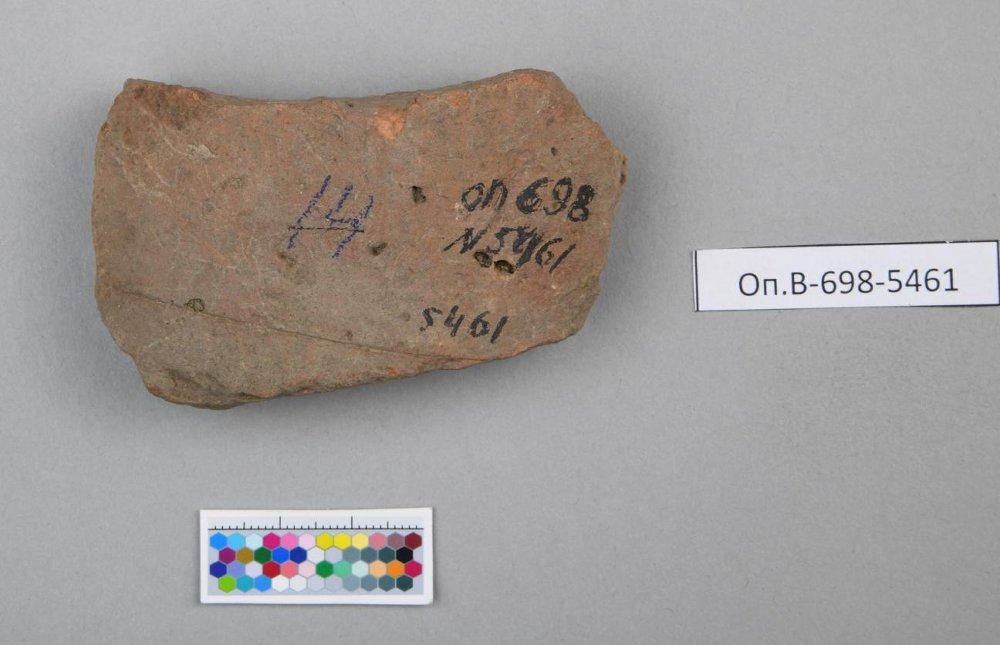 14
оп 698
N 5461
5461
Оп.В-698-5461